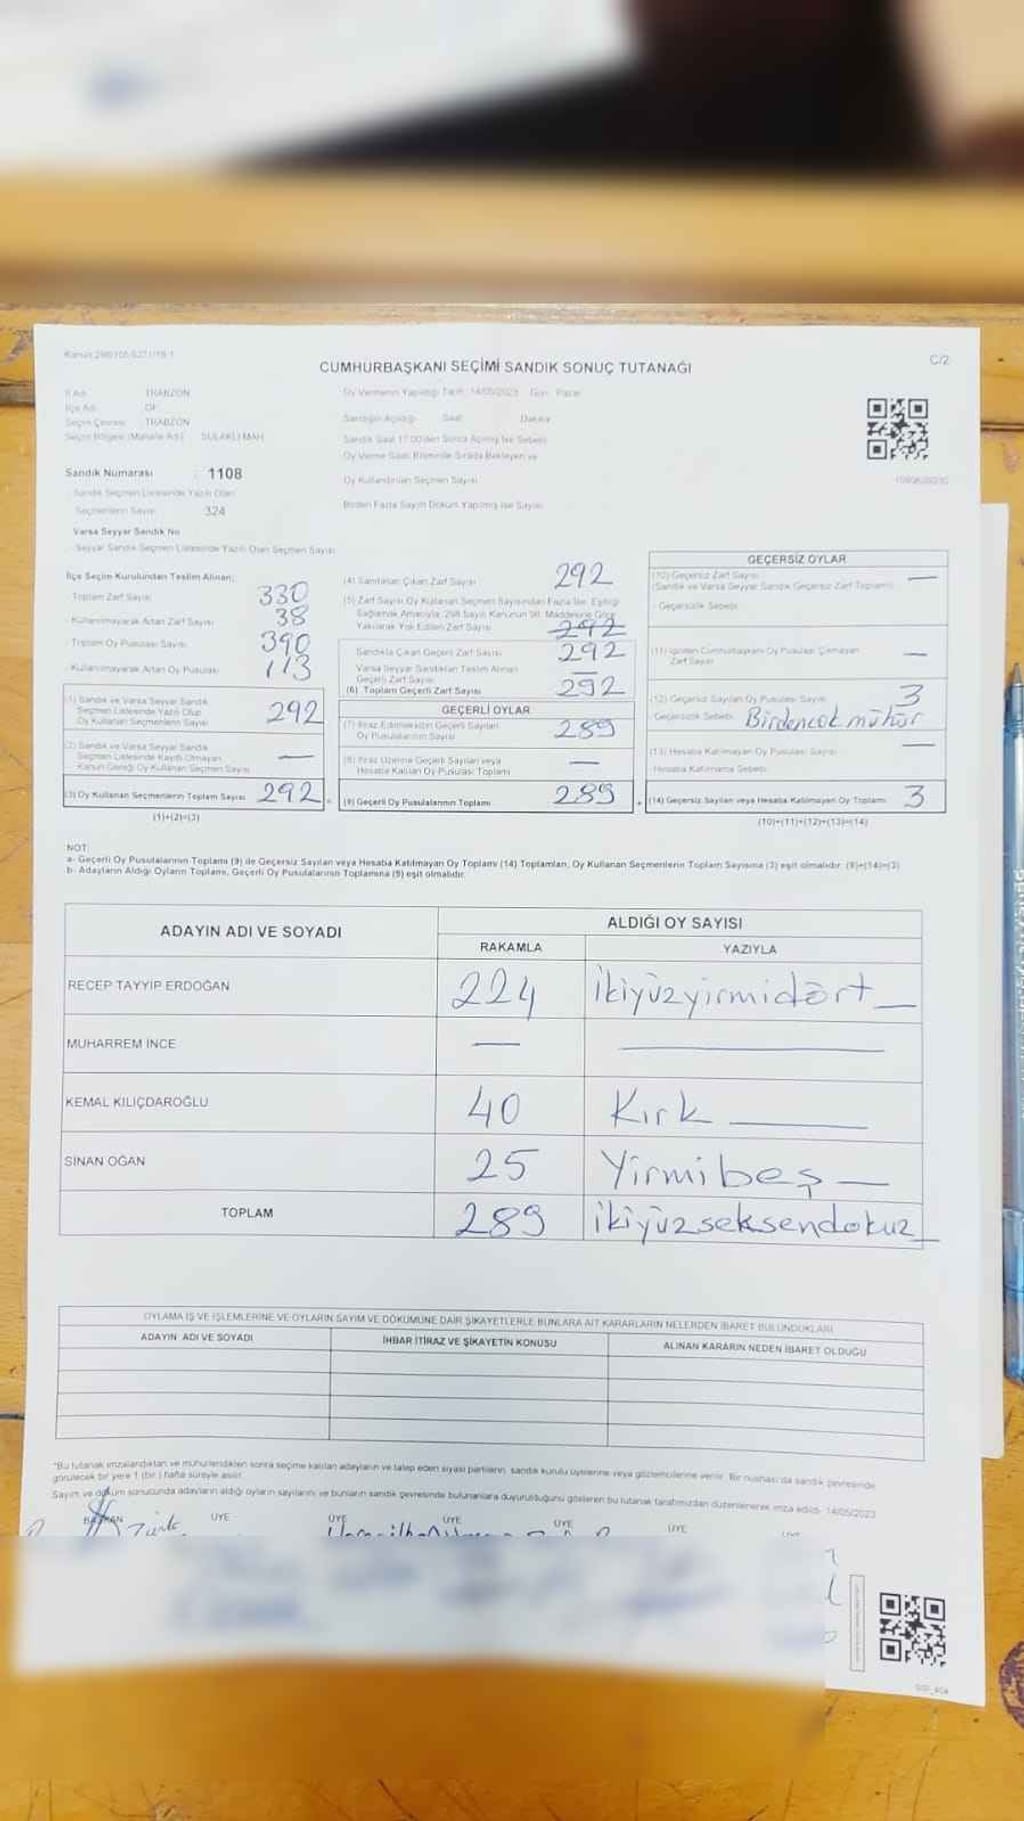 CUMHURBAŞKANI SEÇİMİ SANDIK SONUÇ TUTANAĞI
C/2
İl Adı TRABZON
İlçe Adı OF
Seçim Çevresi TRABZON
Seçim Bölgesi (Mahalle Adı) SULAKLI MAH.
Oy Vermenin Yapıldığı Tarih: 14/05/2023 Gün: Pazar
Sandığın Açıldığı Saat Dakika
Sandık Saat 17.00'den Sonra Açılmış İse Sebebi
Oy Verme Saati Bitiminde Sırada Bekleyen ve
Oy Kullandırılan Seçmen Sayısı
Birden Fazla Sayım Döküm Yapılmış İse Sayısı
Sandık Numarası : 1108
Sandık Seçmen Listesinde Yazılı Olan
Seçmenlerin Sayısı 324
Varsa Seyyar Sandık No
Seyyar Sandık Seçmen Listesinde Yazılı Olan Seçmen Sayısı
İlçe Seçim Kurulundan Teslim Alınan;
Toplam Zarf Sayısı 330
Kullanılmayarak Artan Zarf Sayısı 38
Toplam Oy Pusulası Sayısı 390
Kullanılmayarak Artan Oy Pusulası 113
(1) Sandık ve Varsa Seyyar Sandık
Seçmen Listesinde Yazılı Olup
Oy Kullanan Seçmenlerin Sayısı 292
(2) Sandık ve Varsa Seyyar Sandık
Seçmen Listesinde Kayıtlı Olmayan
Kanun Gereği Oy Kullanan Seçmen Sayısı —
(3) Oy Kullanan Seçmenlerin Toplam Sayısı 292
(1)+(2)=(3)
(4) Sandıktan Çıkan Zarf Sayısı 292
(5) Zarf Sayısı Oy Kullanan Seçmen Sayısından Fazla İse, Eşitliği
Sağlamak Amacıyla, 298 Sayılı Kanunun 98. Maddesine Göre
Yakılarak Yok Edilen Zarf Sayısı 292
Sandıkta Çıkan Geçerli Zarf Sayısı 292
Varsa Seyyar Sandıktan Teslim Alınan
Geçerli Zarf Sayısı —
(6) Toplam Geçerli Zarf Sayısı 292
GEÇERLİ OYLAR
(7) İtiraz Edilmeksizin Geçerli Sayılan
Oy Pusulalarının Sayısı 289
(8) İtiraz Üzerine Geçerli Sayılan veya
Hesaba Katılan Oy Pusulası Toplamı —
(9) Geçerli Oy Pusulalarının Toplamı 289
GEÇERSİZ OYLAR
(10) Geçersiz Zarf Sayısı —
(Sandık ve Varsa Seyyar Sandık Geçersiz Zarf Toplamı)
Geçersizlik Sebebi
(11) İçinden Cumhurbaşkanı Oy Pusulası Çıkmayan
Zarf Sayısı —
(12) Geçersiz Sayılan Oy Pusulası Sayısı 3
Geçersizlik Sebebi Birdencok mühür
(13) Hesaba Katılmayan Oy Pusulası Sayısı —
Hesaba Katılmama Sebebi
(14) Geçersiz Sayılan veya Hesaba Katılmayan Oy Toplamı 3
(10)+(11)+(12)+(13)=(14)
NOT:
a- Geçerli Oy Pusulalarının Toplamı (9) ile Geçersiz Sayılan veya Hesaba Katılmayan Oy Toplamı (14) Toplamları, Oy Kullanan Seçmenlerin Toplam Sayısına (3) eşit olmalıdır. (9)+(14)=(3)
b- Adayların Aldığı Oyların Toplamı, Geçerli Oy Pusulalarının Toplamına (9) eşit olmalıdır.
ADAYIN ADI VE SOYADI
ALDIĞI OY SAYISI
RAKAMLA YAZIYLA
RECEP TAYYİP ERDOĞAN 224 ikiyüzyirmidört
MUHARREM İNCE — —
KEMAL KILIÇDAROĞLU 40 Kırk
SİNAN OĞAN 25 Yirmibeş
TOPLAM 289 ikiyüzseksendokuz
OYLAMA İŞ VE İŞLEMLERİNE VE OYLARIN SAYIM VE DÖKÜMÜNE DAİR ŞİKAYETLERLE BUNLARA AİT KARARLARIN NELERDEN İBARET BULUNDUKLARI
ADAYIN ADI VE SOYADI
İHBAR İTİRAZ VE ŞİKAYETİN KONUSU
ALINAN KARARIN NEDEN İBARET OLDUĞU
*Bu tutanak imzalandıktan ve mühürlendikten sonra seçime katılan adayların ve talep eden siyasi partilerin sandık kurulu üyelerine veya gözlemcilerine verilir. Bir nüshası da sandık çevresinde
görülecek bir yere 1 (bir) hafta süreyle asılır.
Sayım ve döküm sonucunda adayların aldığı oyların sayılarını ve bunların sandık çevresinde bulunanlara duyurulduğunu gösteren bu tutanak tarafımızdan düzenlenerek imza edildi. 14/05/2023
BAŞKAN ÜYE ÜYE ÜYE ÜYE ÜYE